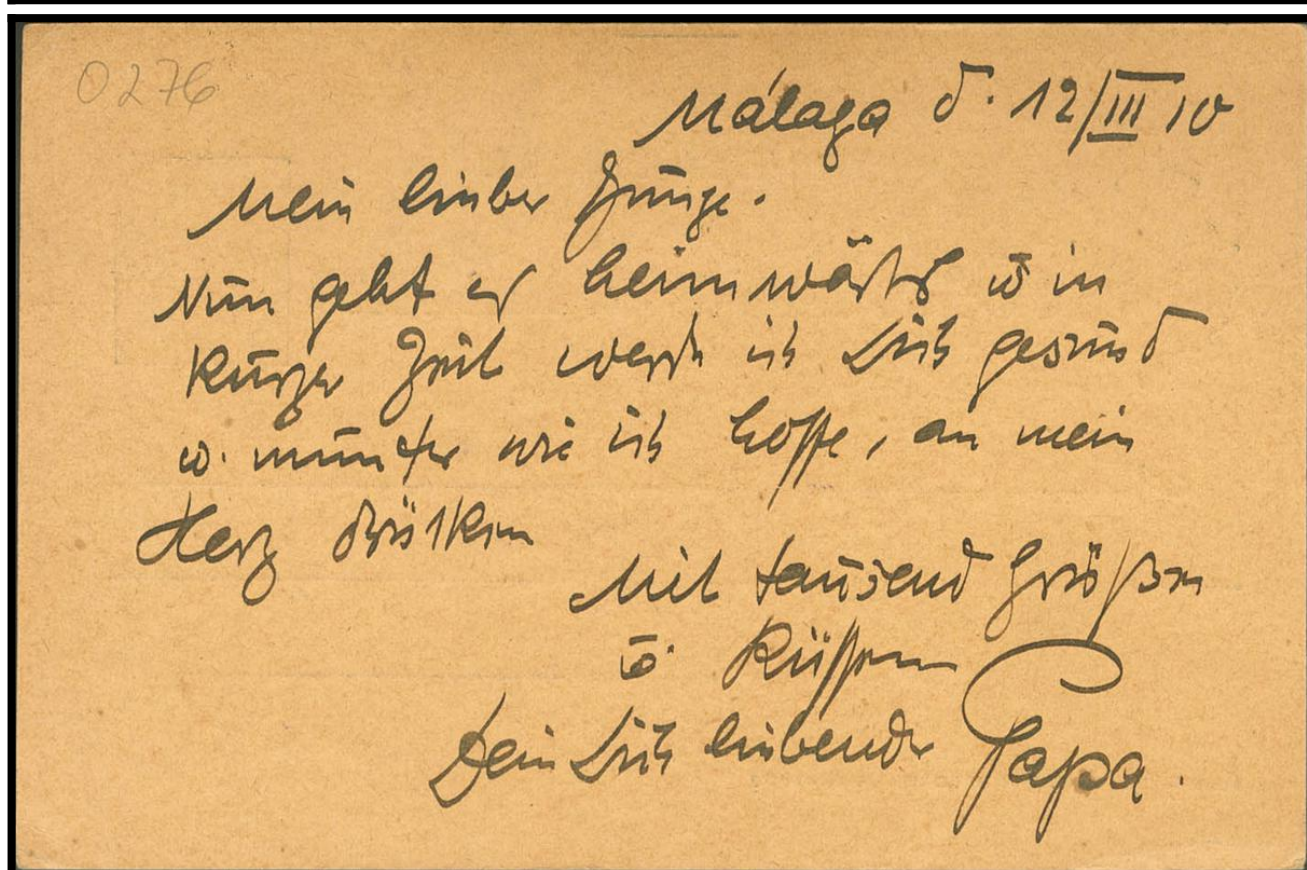 0276
Málaga d. 12/III 10
Mein lieber Junge.
Nun geht es heimwärts u in
kurzer Zeit werde ich Dich gesund
u. munter wie ich hoffe, an mein
Herz drücken
Mit tausend Grüßen
u. Küssen
Dein Dich liebender Papa.